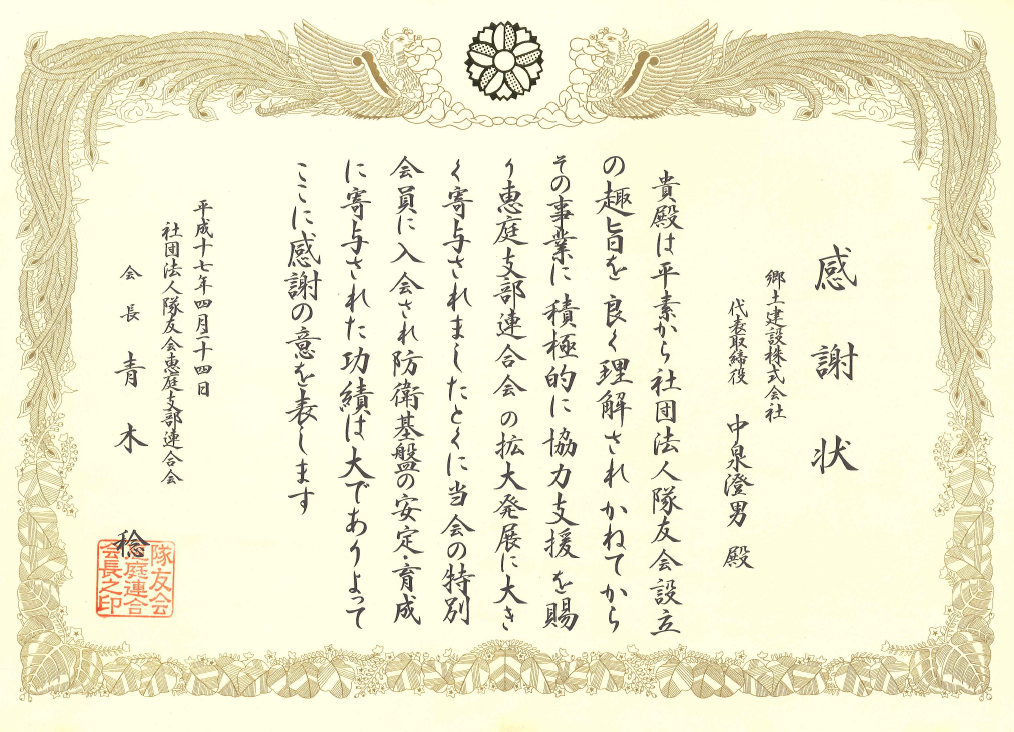 感謝状
郷土建設株式会社
代表取締役 中泉澄男 殿
貴殿は平素から社団法人隊友会設立
の趣旨を良く理解されかねてから
その事業に積極的に協力支援を賜
り恵庭支部連合会の拡大発展に大き
く寄与されましたとくに当会の特別
会員に入会され防衛基盤の安定・育成
に寄与された功績は大でありよって
ここに感謝の意を表します
平成十七年四月二十四日
社団法人隊友会恵庭支部連合会
会長 青木 稔
隊友会
恵庭連合
会長之印